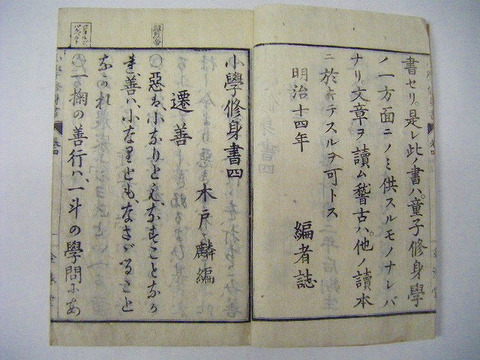 書セリ是レ此ノ書ハ、童子修身學
ノ一方面ニノミ供スルモノナレバ
ナリ文章ヲ讀ム稽古ハ、他ノ讀本
ニ於キテスルヲ可トス
明治十四年
編者誌
小學修身書四
木戸麟編
遷善
○惡は小なりとも、なすことなか
れ善ハ、小なりとも、なさゞること
なかれ
○一掬の善行ハ、一斗の學問にあ